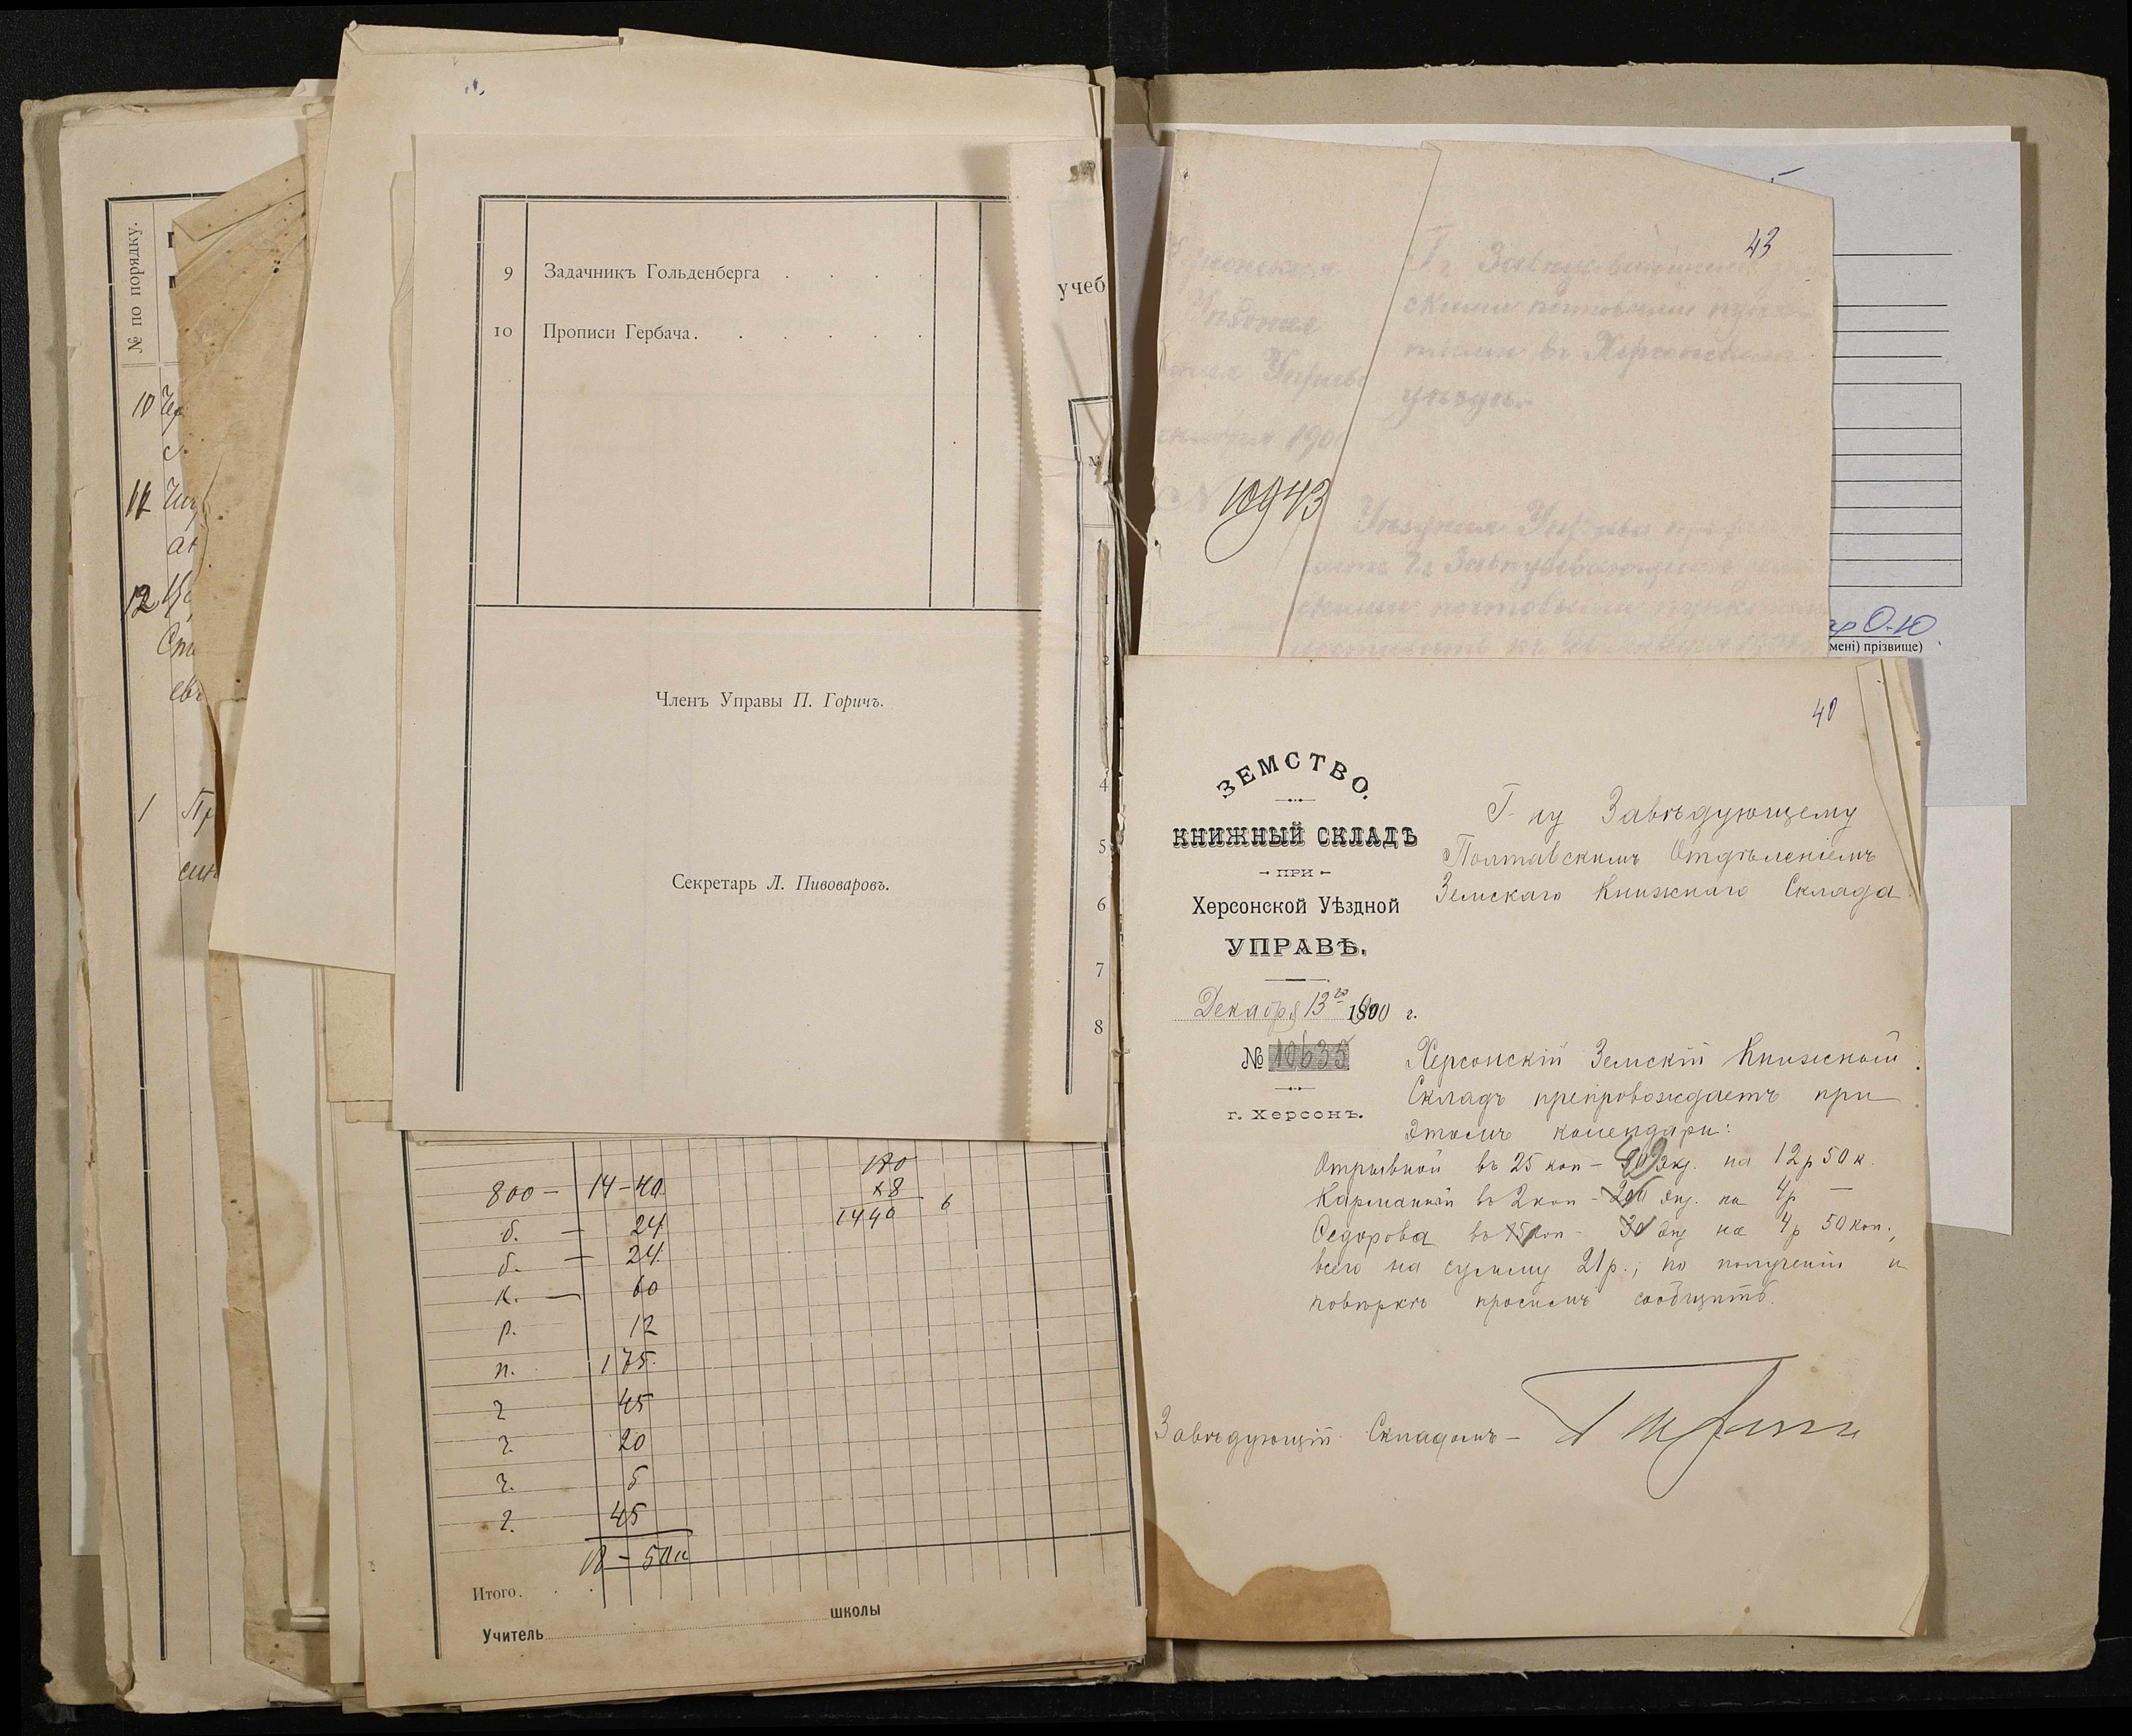 № по порядку.
10
11
12
1
9 Задачникъ Гольденберга . . . .
10 Прописи Гербача. . . . . .
Членъ Управы П. Горичъ.
Секретарь Л. Пивоваровъ.
учеб
№
1
2
3
4
5
6
7
8
800 — 14-40
180
×8
1440 6
б. — 24
б. — 24
к. — 60
р. 12
п. 175
г 45
г. 20
г. 5
г. 45
18 - 50к
Итого.
Учитель школы
43
Херсонская
Уѣздная
Земская Управа
1900
№ 10943
Гг. Завѣдывающимъ
скими почтовыми пунк-
тами въ Херсонскомъ
уѣздѣ.
Уѣздная Управа
Гг. Завѣдывающимъ
скими почтовыми пунктами
мені) прізвище)
40
ЗЕМСТВО.
КНИЖНЫЙ СКЛАДЪ
ПРИ
Херсонской Уѣздной
УПРАВѢ.
Декабря 13го 1900 г.
№ 10635
г. Херсонъ.
Г-ну Завѣдующему
Полтавскимъ Отдѣленіемъ
Земскаго Книжнаго Склада
Херсонскій Земскій Книжный
Складъ препровождаетъ при
этомъ календари:
Отрывной въ 25 коп - 50 экз. на 12 р 50 к.
Карманный въ 2 коп - 200 экз. на 4 р —
Федорова въ 15 коп - 30 экз на 4 р 50 коп.,
всего на сумму 21 р.; по полученіи и
повѣркѣ просимъ сообщить.
Завѣдующій Складомъ —